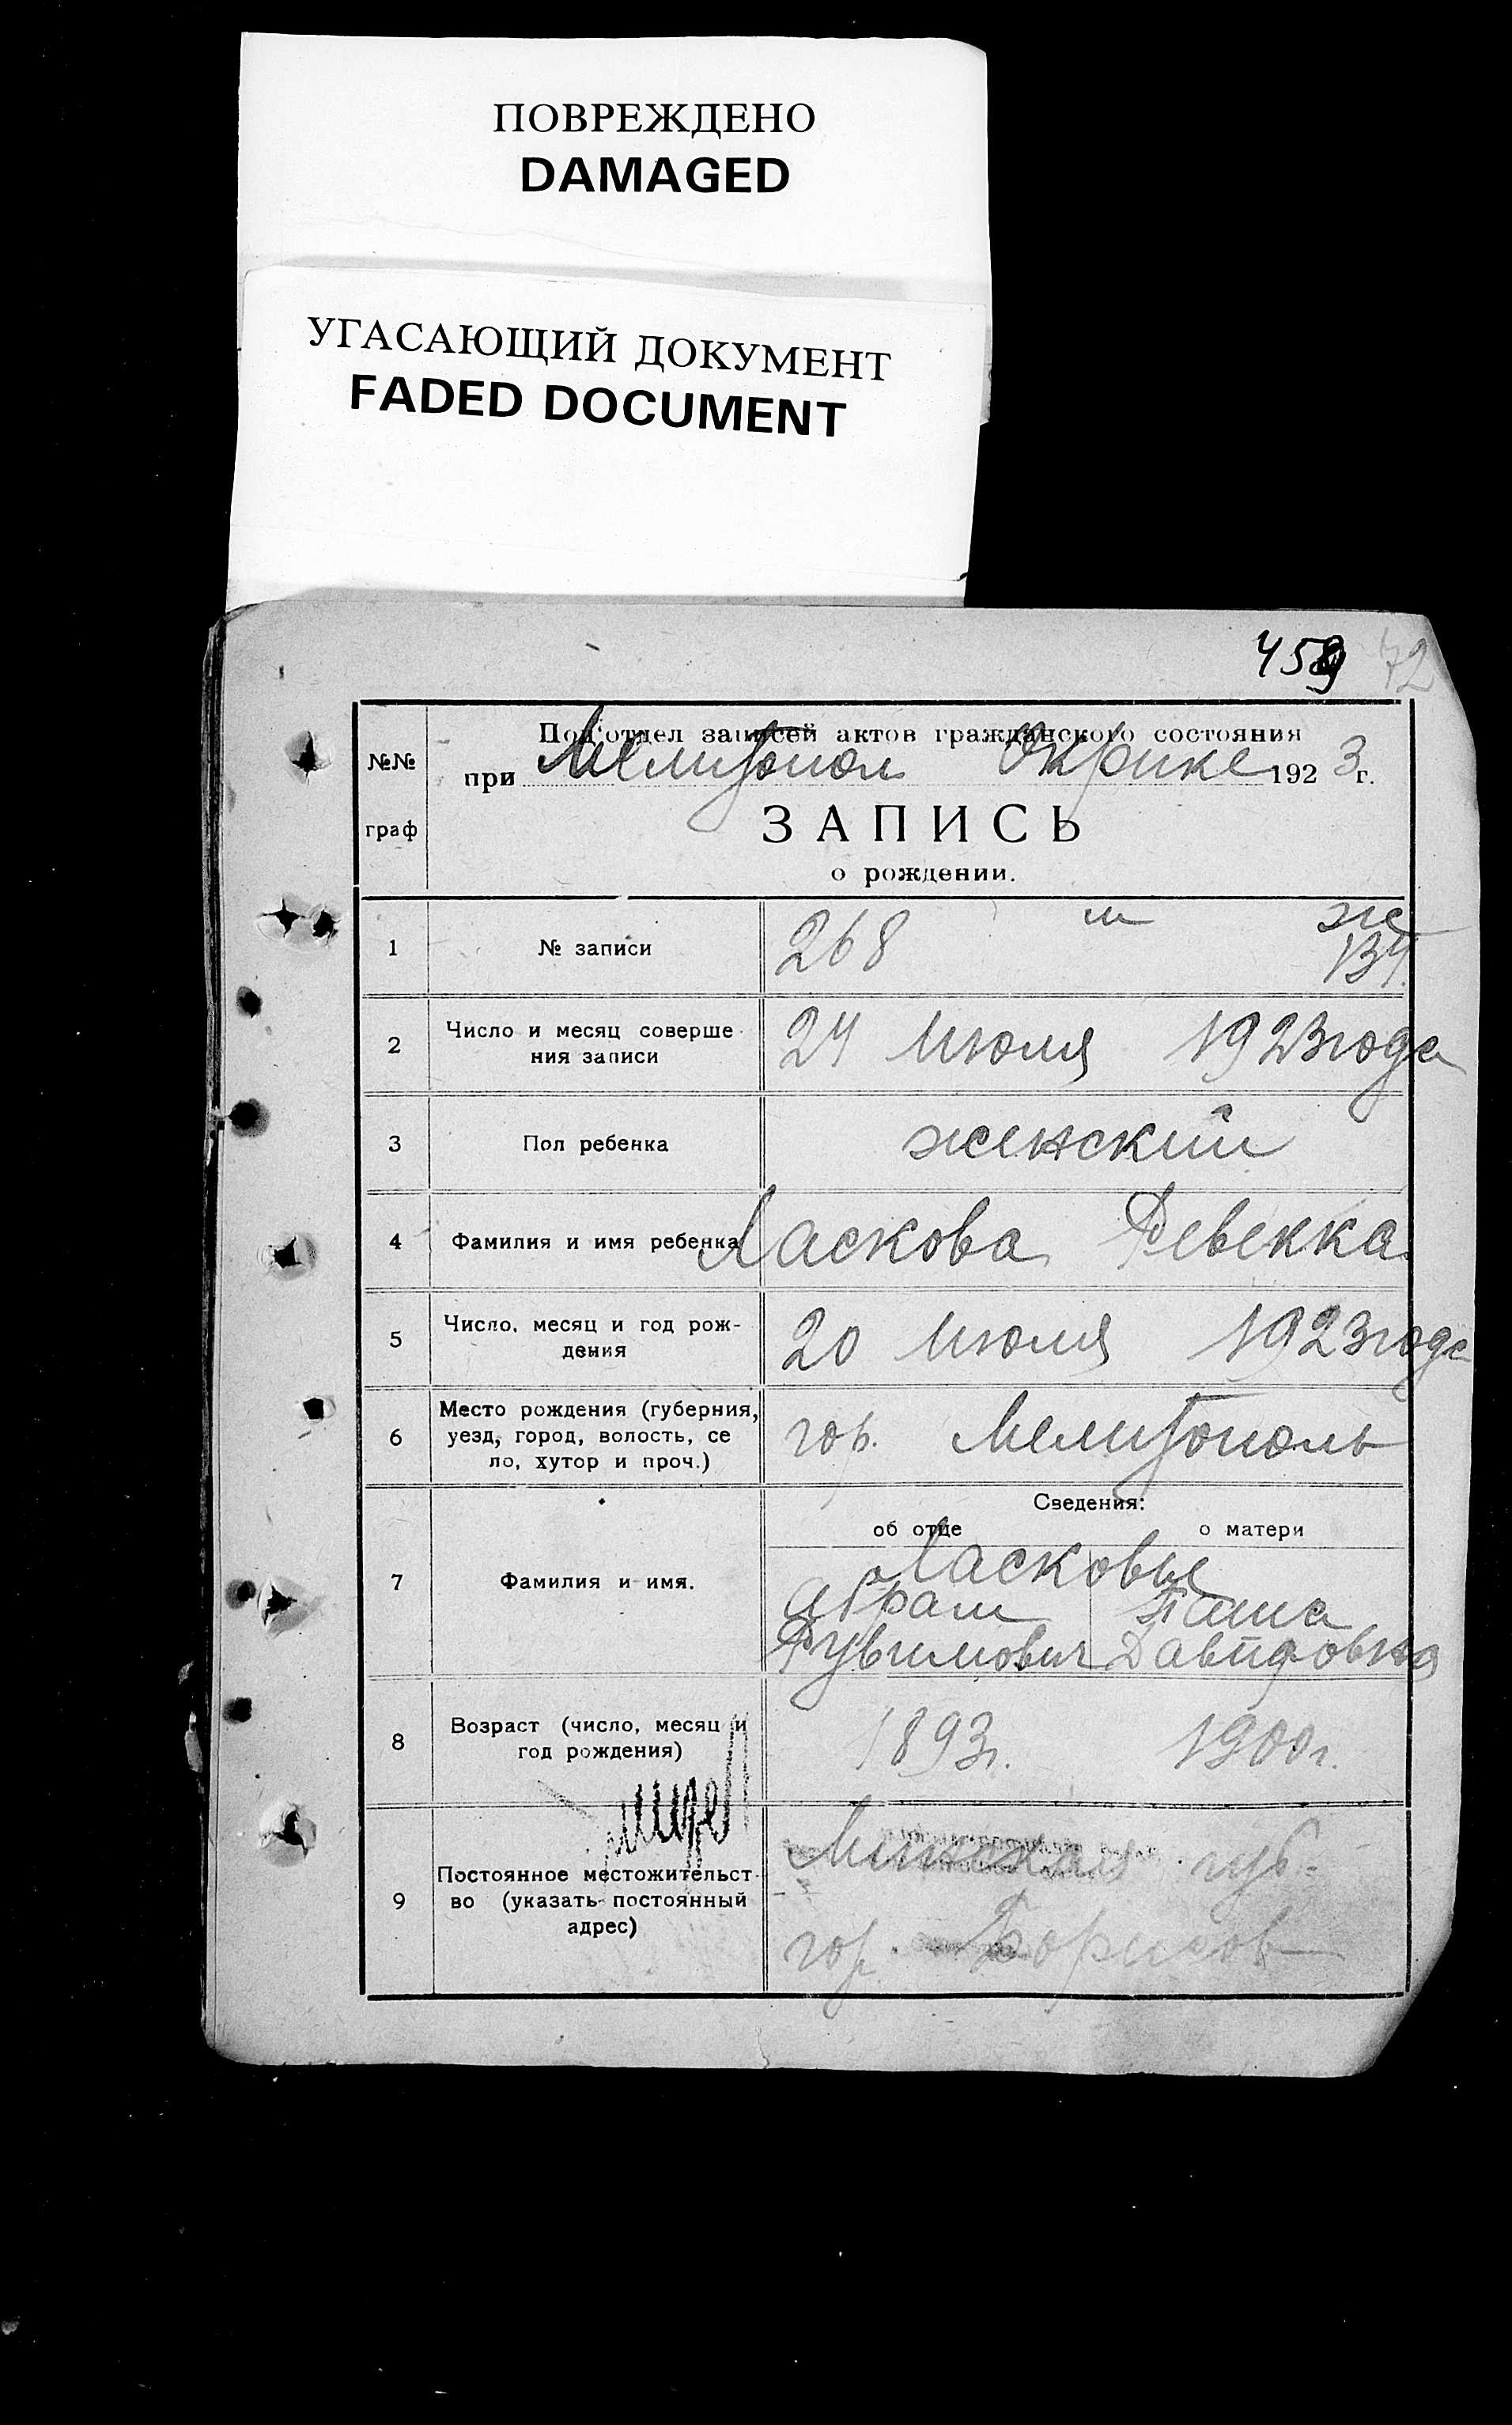 ПОВРЕЖДЕНО
DAMAGED
УГАСАЮЩИЙ ДОКУМЕНТ
FADED DOCUMENT
459 72
№№ граф
Под'отдел записей актов гражданского состояния
при Мелитопол Окрике 1923 г.
ЗАПИСЬ
о рождении.
1 № записи 268 м же
134.
2 Число и месяц соверше
ния записи 24 Июля 1923 года
3 Пол ребенка женский
4 Фамилия и имя ребенка Ласкова Ревекка
5 Число, месяц и год рож-
дения 20 Июля 1923 года
6 Место рождения (губерния,
уезд, город, волость, се
ло, хутор и проч.) гор. Мелитополь
Сведения:
об отце о матери
7 Фамилия и имя. Ласковы
Абрам
Рувимович Давидовна
8 Возраст (число, месяц и
год рождения) 1893г. 1900г.
9 Постоянное местожительст
во (указать постоянный
адрес) Минская губ.
гор. Борисов